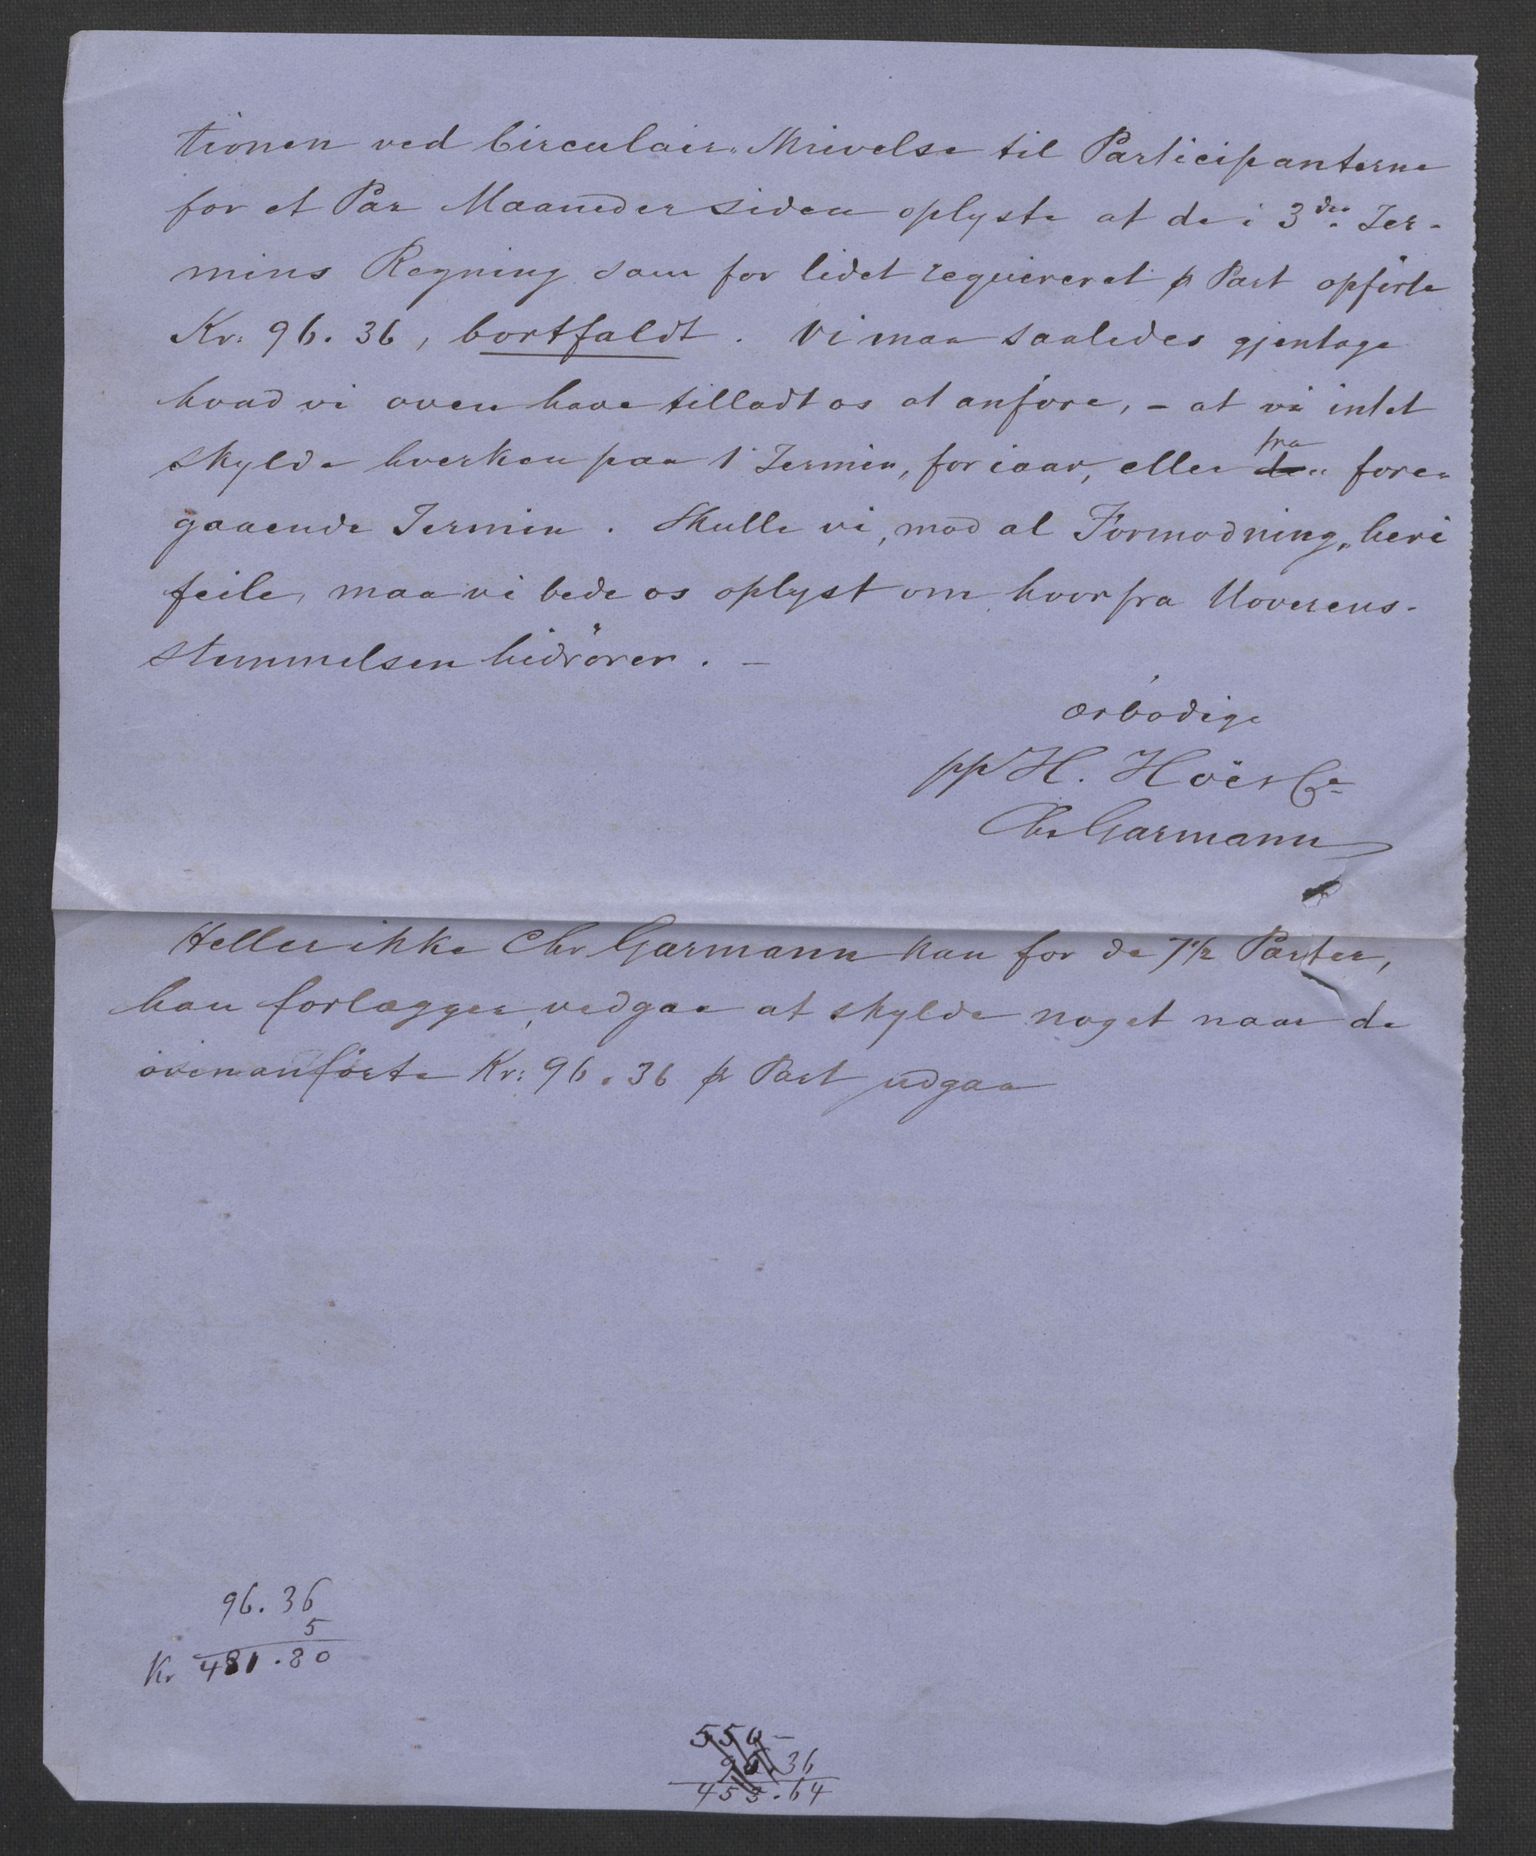 tionen ved Circulair-Skrivelse til Participanterne
for et Par Maaneder siden oplyste at de i 3die Ter-
mins Regning som for lidet requireret pr Part opførte
Kr: 96.36, bortfaldt. Vi maa saaledes gjentage
hvad vi oven have tilladt os at anføre, – at vi intet
skylde hverken paa 1 Termin, for iaar, eller fra fore-
gaaende Termin. Skulle vi, mod al Formodning, heri
feile, maa vi bede os oplyst om hvorfra Uoverens-
stemmelsen hidrører. –
ærbødige
pp H. Höes Co
Chr Garmann
Heller ikke Chr. Garmann kan for de 7 1/2 Parter,
han forlægger, vedgaa at skylde noget naar de
ovenanførte Kr: 96.36 pr Part udgaa
96.36
5
Kr 481.80
550 –
96.36
453.64